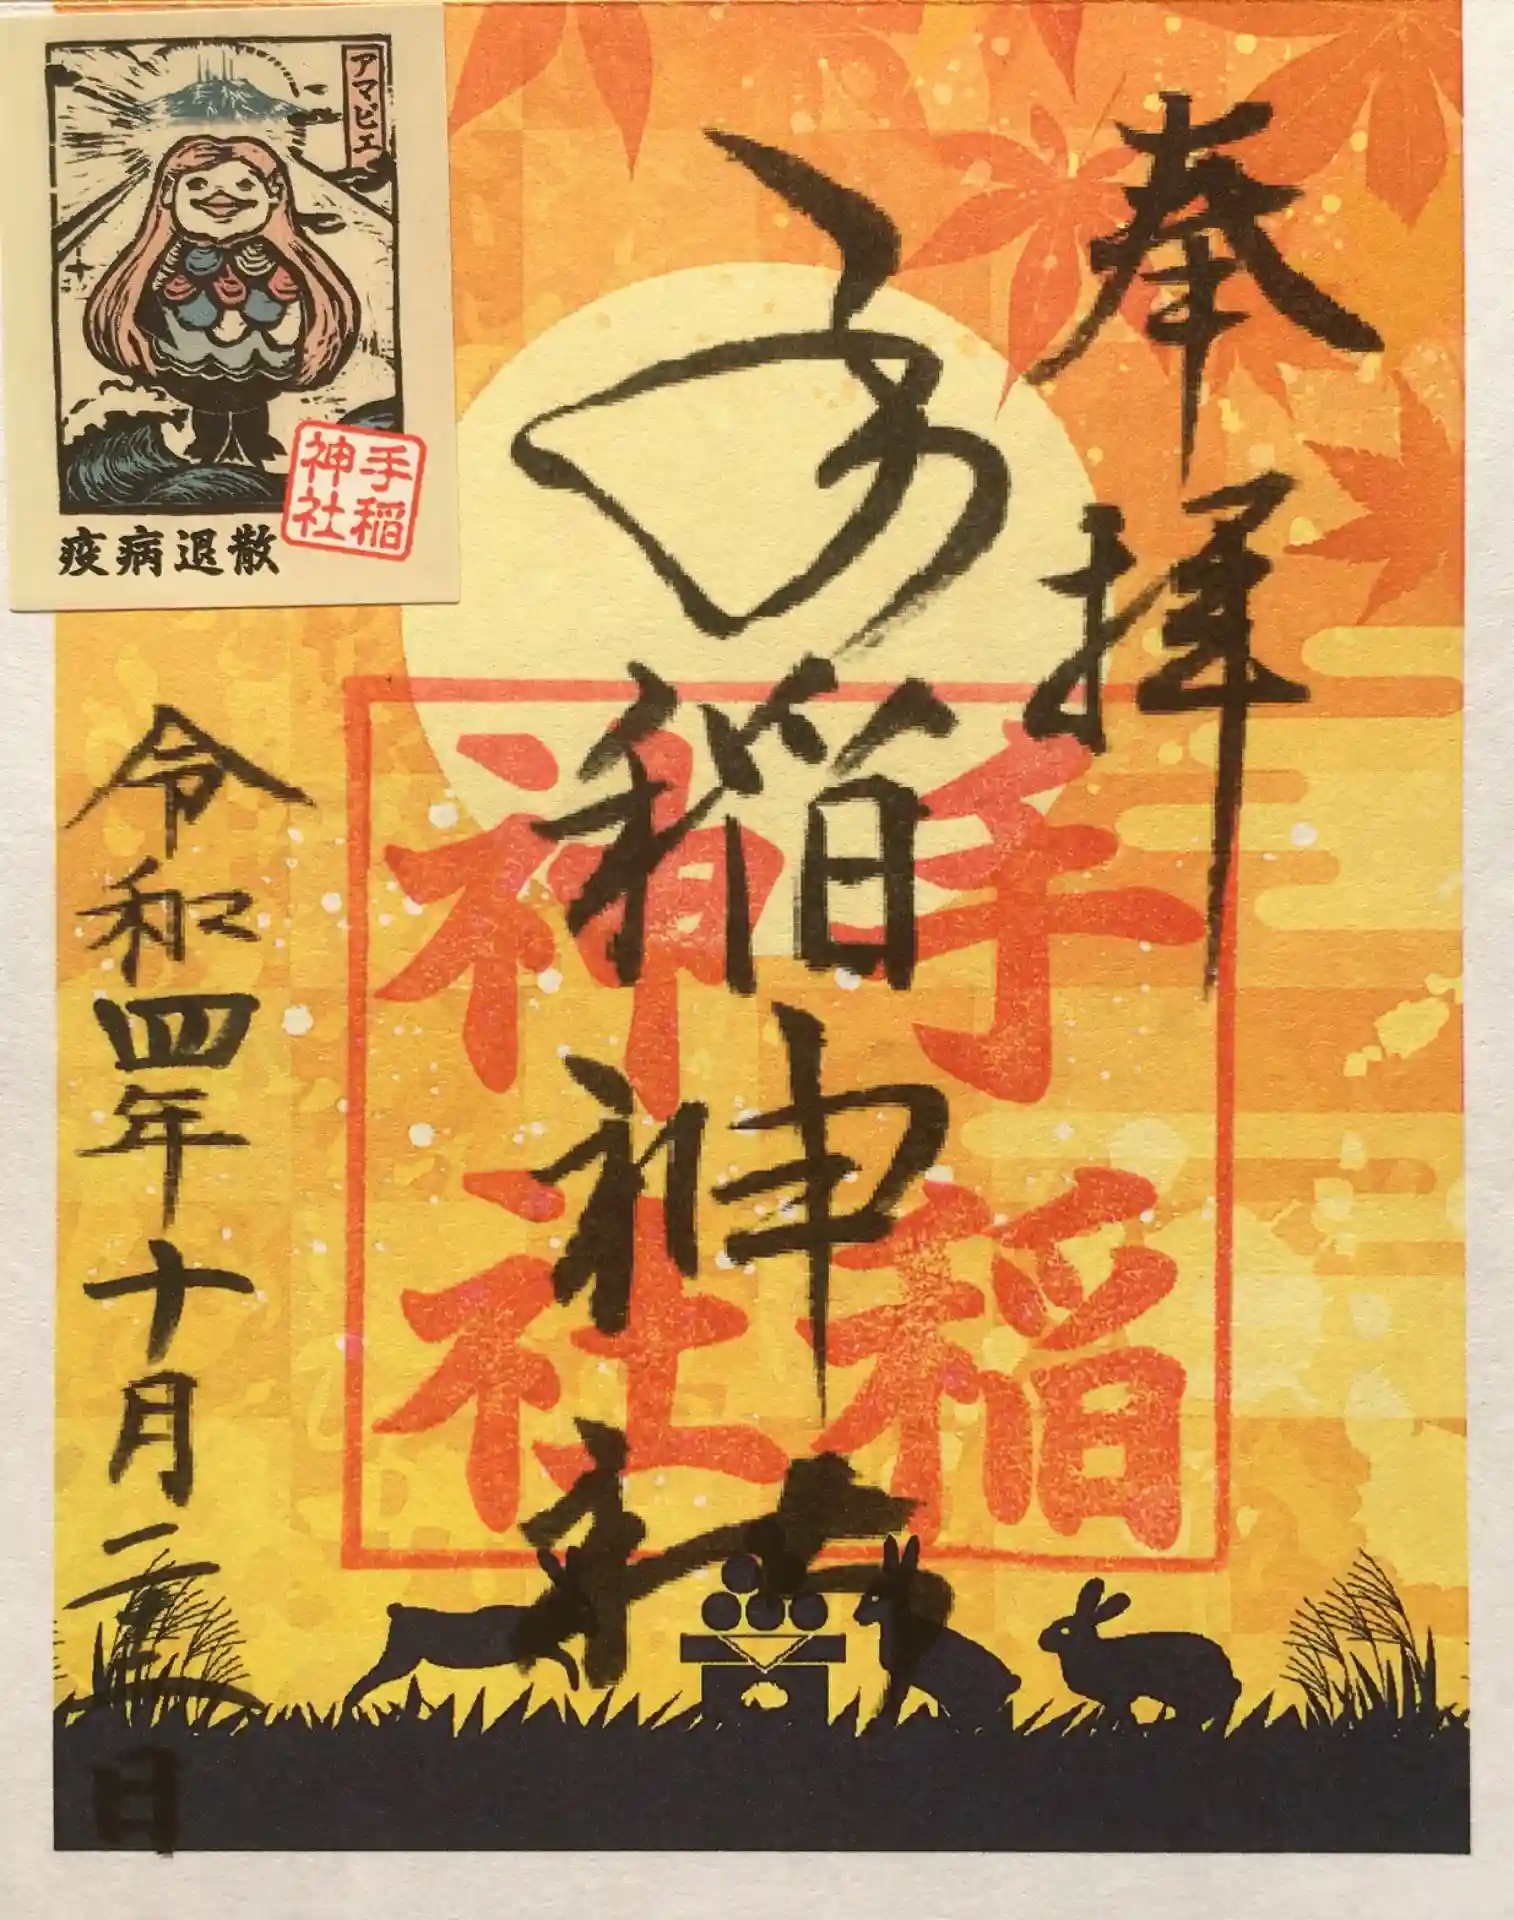 奉拝
手稲神社
令和四年十月二十一日
手稲
神社
アマビエ
疫病退散
手稲
神社